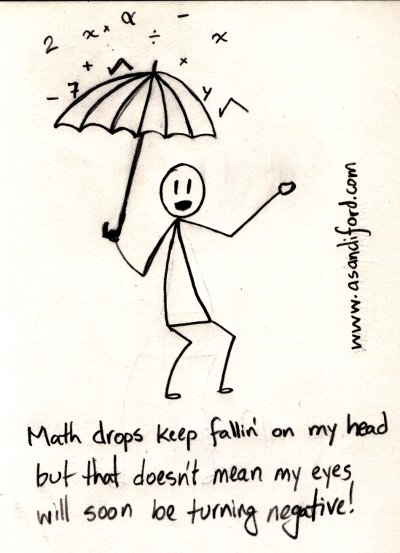 2 x x α ÷ - x
+ √ x
- 7 y √
www.asandiford.com
Math drops keep fallin' on my head
but that doesn't mean my eyes
will soon be turning negative!